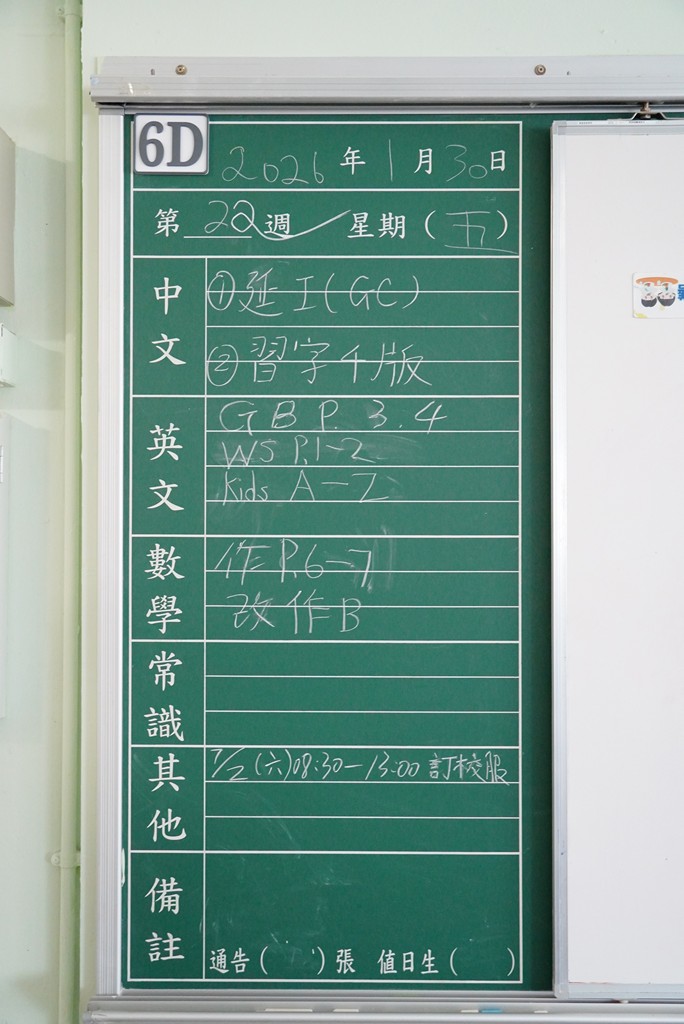 6D
2026年1月30日
第20週 星期(五)
中文
①延工(GC)
②習字4版
英文
GB P. 3.4
WS P.1-2
Kids A-Z
數學
作P.6-7
改作B
常識
其他
7/2(六)08:30-13:00訂校服
備註
通告( )張 值日生( )